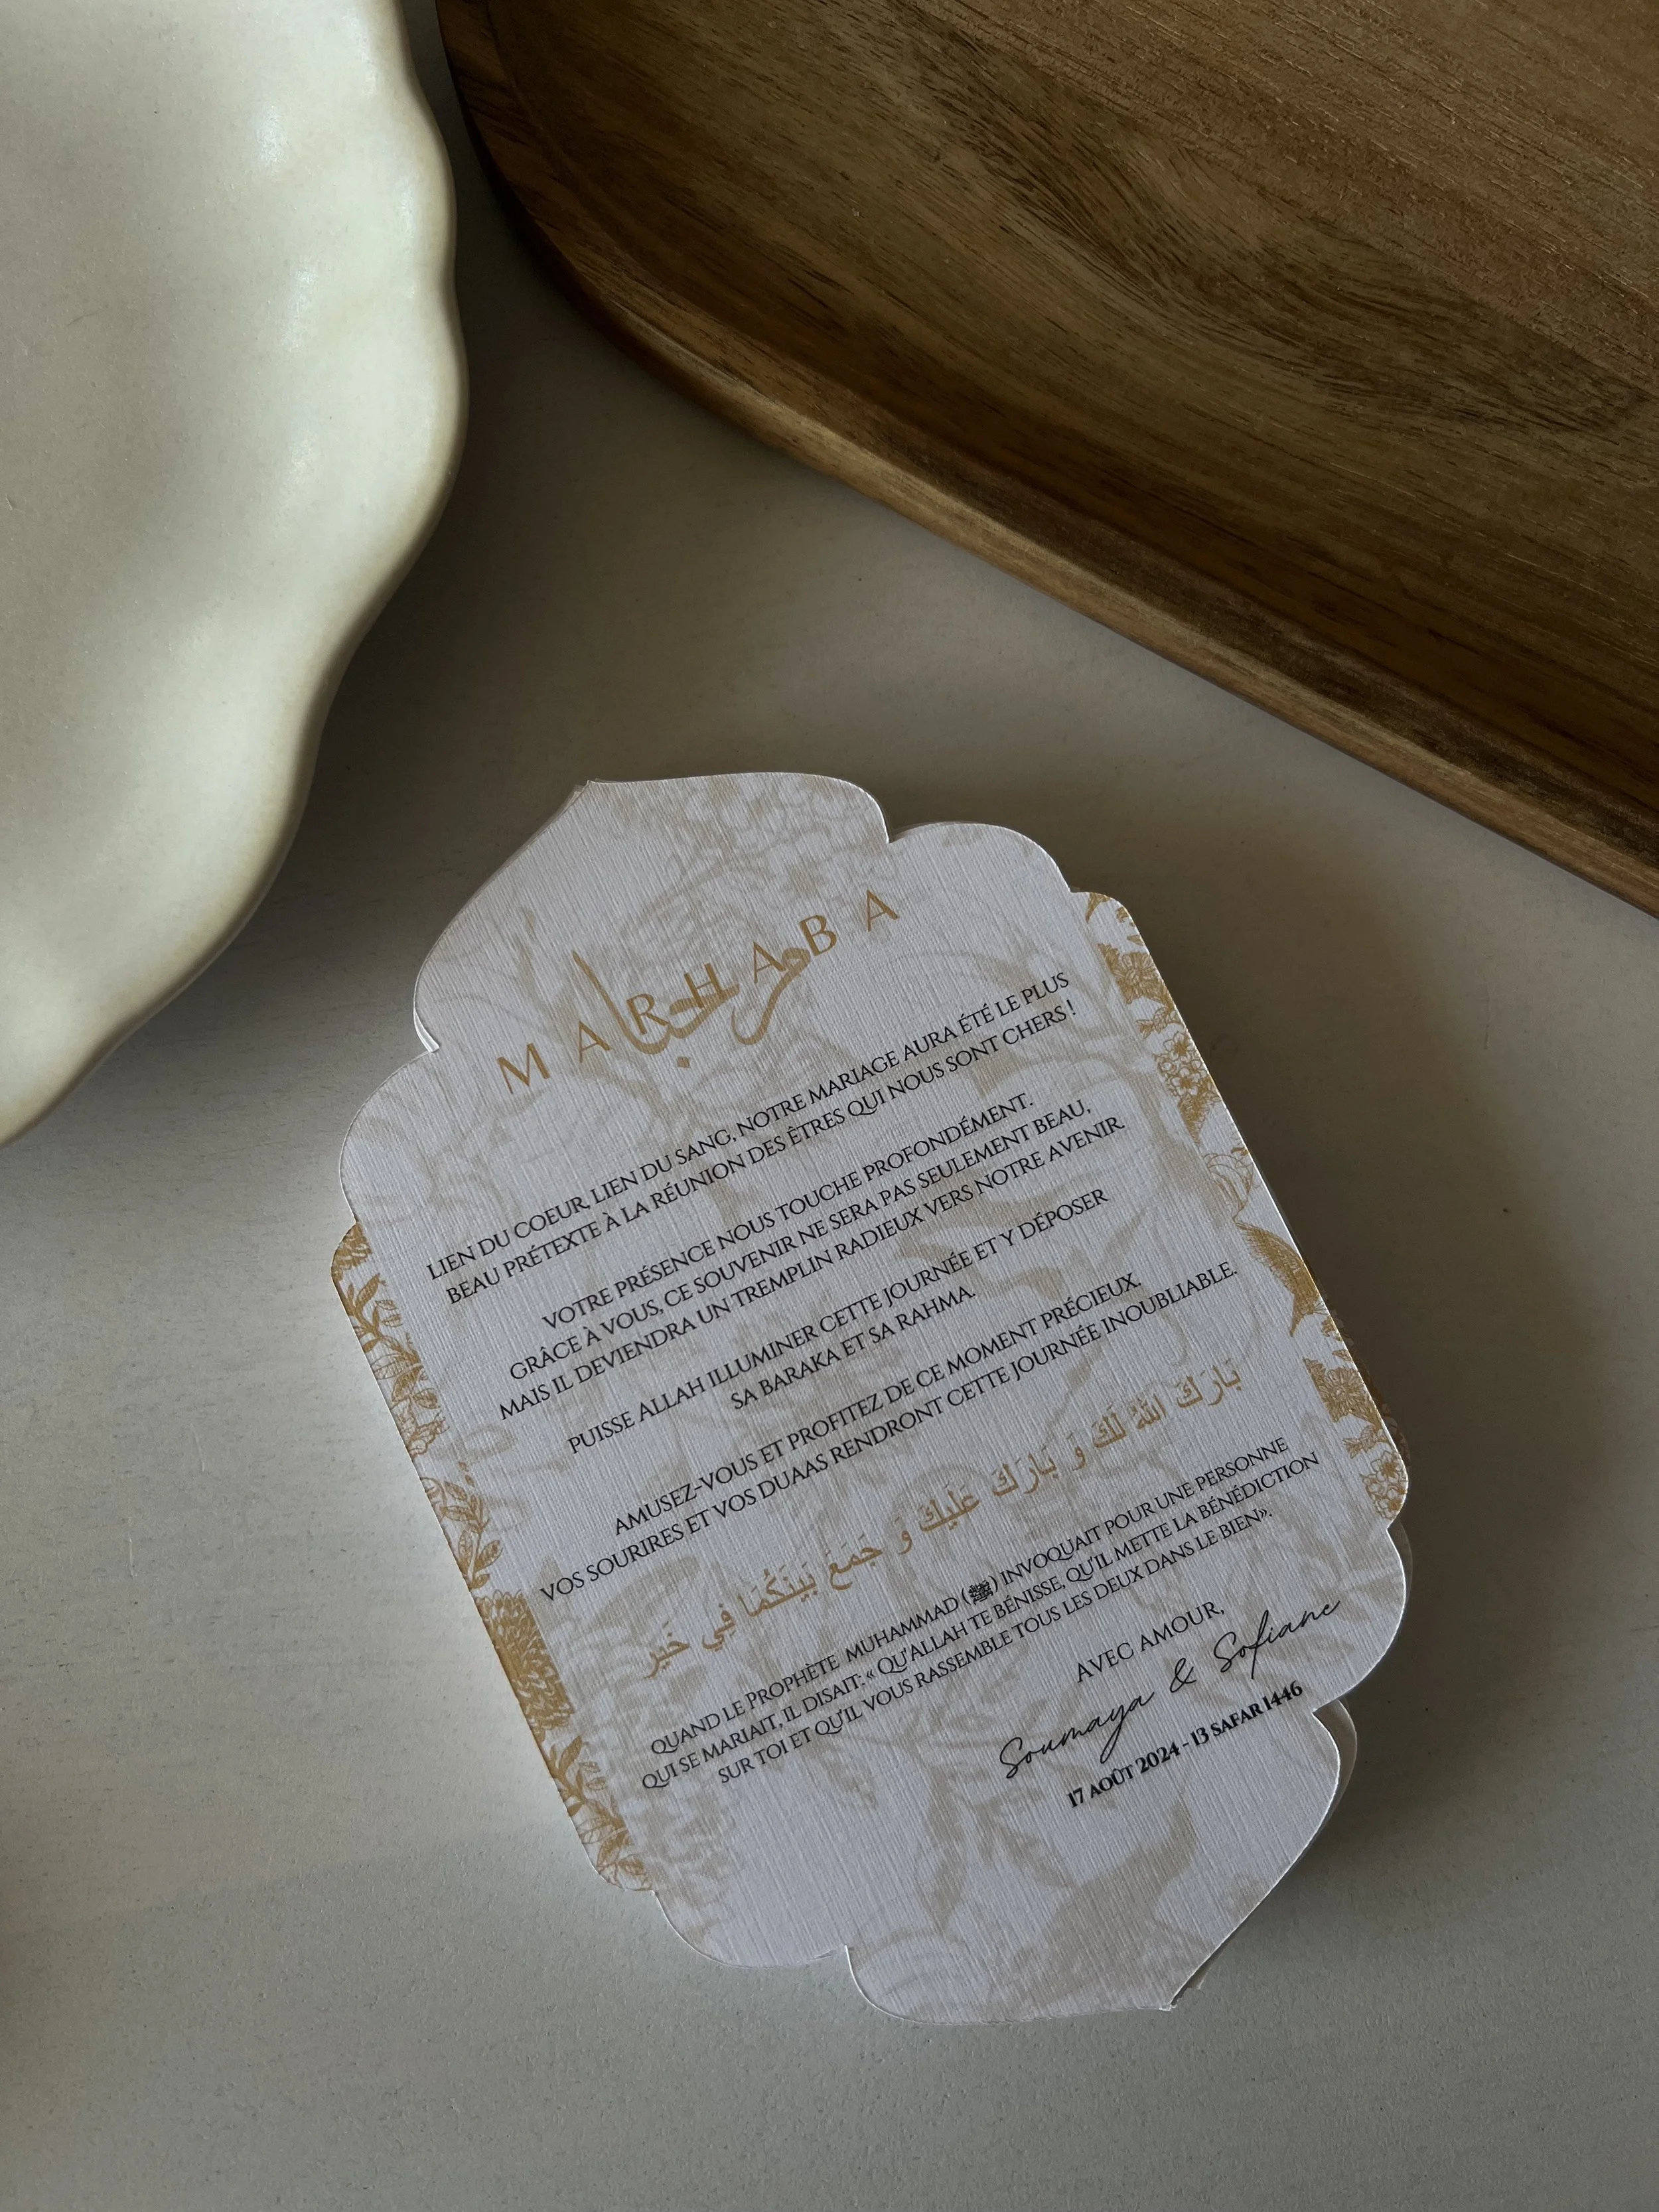 MARHABA
مرحبا
LIEN DU COEUR, LIEN DU SANG, NOTRE MARIAGE AURA ÉTÉ LE PLUS
BEAU PRÉTEXTE À LA RÉUNION DES ÊTRES QUI NOUS SONT CHERS !
VOTRE PRÉSENCE NOUS TOUCHE PROFONDÉMENT.
GRÂCE À VOUS, CE SOUVENIR NE SERA PAS SEULEMENT BEAU,
MAIS IL DEVIENDRA UN TREMPLIN RADIEUX VERS NOTRE AVENIR.
PUISSE ALLAH ILLUMINER CETTE JOURNÉE ET Y DÉPOSER
SA BARAKA ET SA RAHMA.
AMUSEZ-VOUS ET PROFITEZ DE CE MOMENT PRÉCIEUX.
VOS SOURIRES ET VOS DUAAS RENDRONT CETTE JOURNÉE INOUBLIABLE.
بَارَكَ اللَّهُ لَكَ وَ بَارَكَ عَلَيكَ وَ جَمَعَ بَينَكُمَا فِي خَيرٍ
QUAND LE PROPHÈTE MUHAMMAD (ﷺ) INVOQUAIT POUR UNE PERSONNE
QUI SE MARIAIT, IL DISAIT: « QU'ALLAH TE BÉNISSE, QU'IL METTE LA BÉNÉDICTION
SUR TOI ET QU'IL VOUS RASSEMBLE TOUS LES DEUX DANS LE BIEN».
AVEC AMOUR,
Soumaya & Sofiane
17 AOÛT 2024 - 13 SAFAR 1446